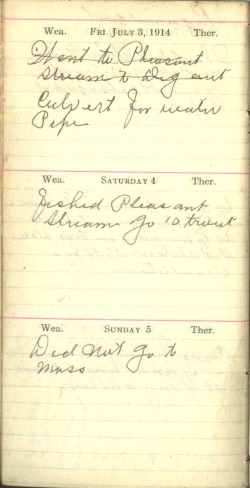 Wea. FRI. JULY 3, 1914 Ther.
Went to Pleasant
Stream to Dig out
Culvert for water
Pipe
Wea. SATURDAY 4 Ther.
Fished Pleasant
Stream go 10 trout
Wea. SUNDAY 5 Ther.
Did Not Go to
Mass